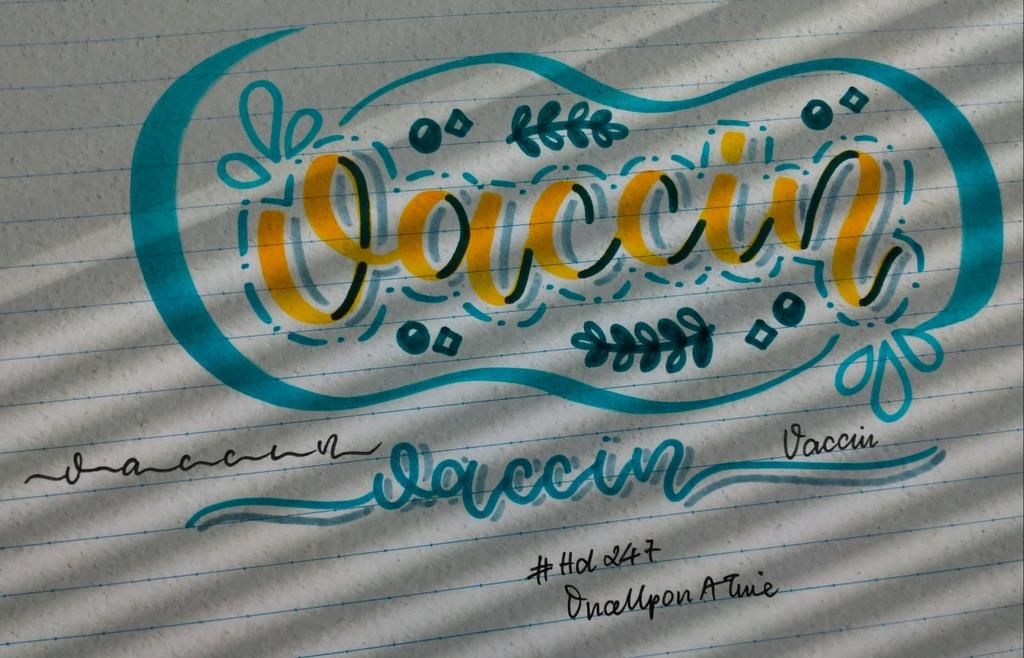 Vaccin
vaccin vaccin Vaccin
#Hd 247
OnceUpon A Time